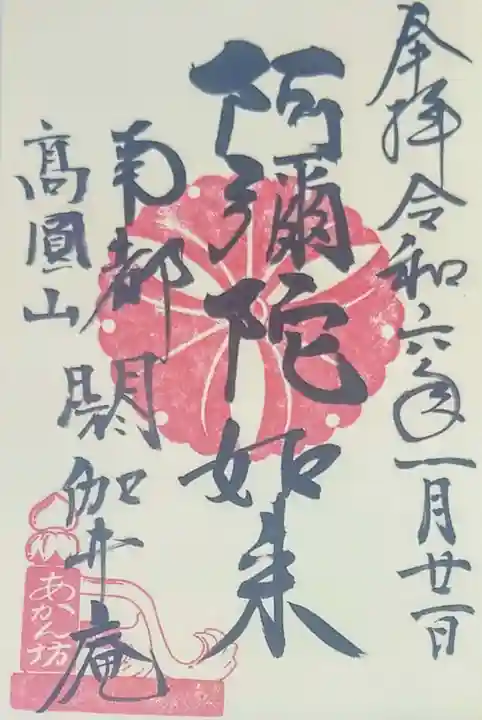 奉拝令和六年一月廿一日
阿彌陀如来
南都閼伽井庵
髙圓山
あかん坊